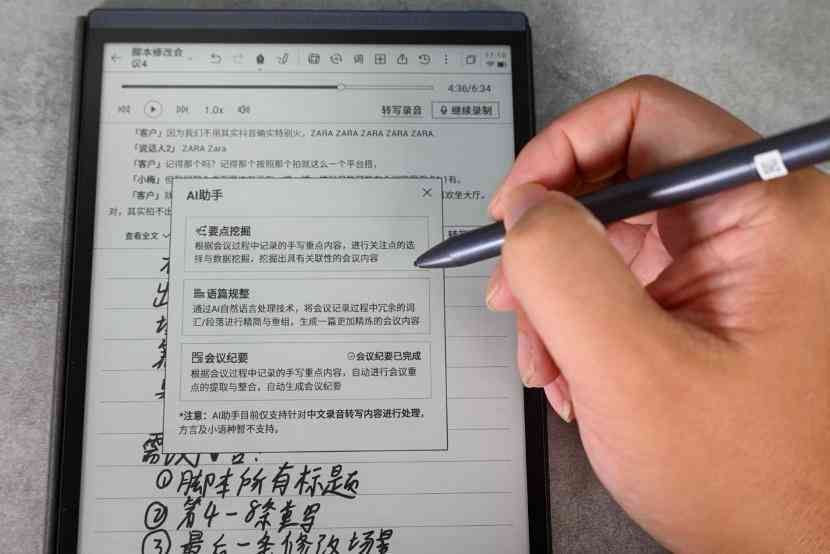 脚本修改会
议4
17:10
4:36/6:34
1.0x
转写录音
继续录制
「客户」因为我们不用其实抖音确实特别火，ZARA ZARA ZARA ZARA ZARA.
「说话人2」ZARA Zara
「客户」记得那个吗？记得那个按照那个拍就这么一个平台搭，
「小梅」但
1有。
「客户」
欢坐大厅。
对，其实拍不出
查看全文
AI助手
要点挖掘
根据会议过程中记录的手写重点内容，进行关注点的选
择与数据挖掘，挖掘出具有关联性的会议内容
语篇规整
通过AI自然语言处理技术，将会议记录过程中冗余的词
汇/段落进行精简与重组，生成一篇更加精炼的会议内容
会议纪要
会议纪要已完成
根据会议过程中记录的手写重点内容，自动进行会议重
点的提取与整合，自动生成会议纪要
*注意：AI助手目前仅支持针对中文录音转写内容进行处理，
方言及小语种暂不支持。
①脚本所有标题
②第4-8条重写
③最后一条修改场景